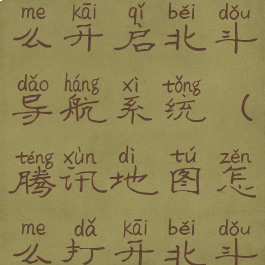 me kāi qǐ běi dǒu
么开启北斗
dǎo háng xì tǒng
导航系统（
téng xùn dì tú zěn
腾讯地图怎
me dǎ kāi běi dǒu
么打开北斗